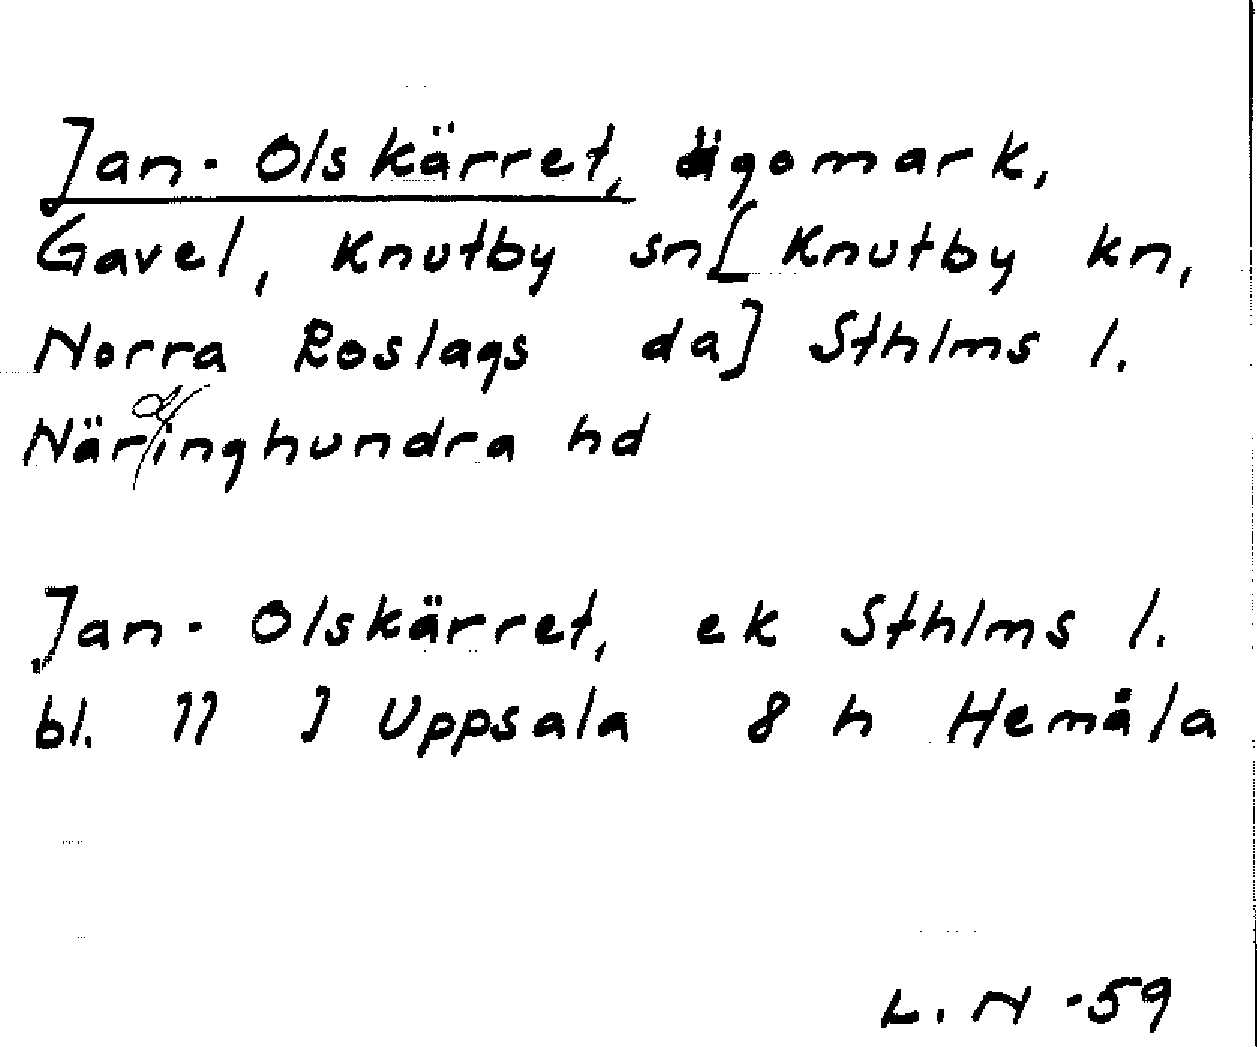 Jan-Olskärret, ägomark,
Gavel, Knutby sn [Knutby kn,
Norra Roslags da] Sthlms l.
Närdinghundra hd
Jan-Olskärret, ek Sthlms l.
bl. 11 I Uppsala 8 h Hemåla
L. N -59